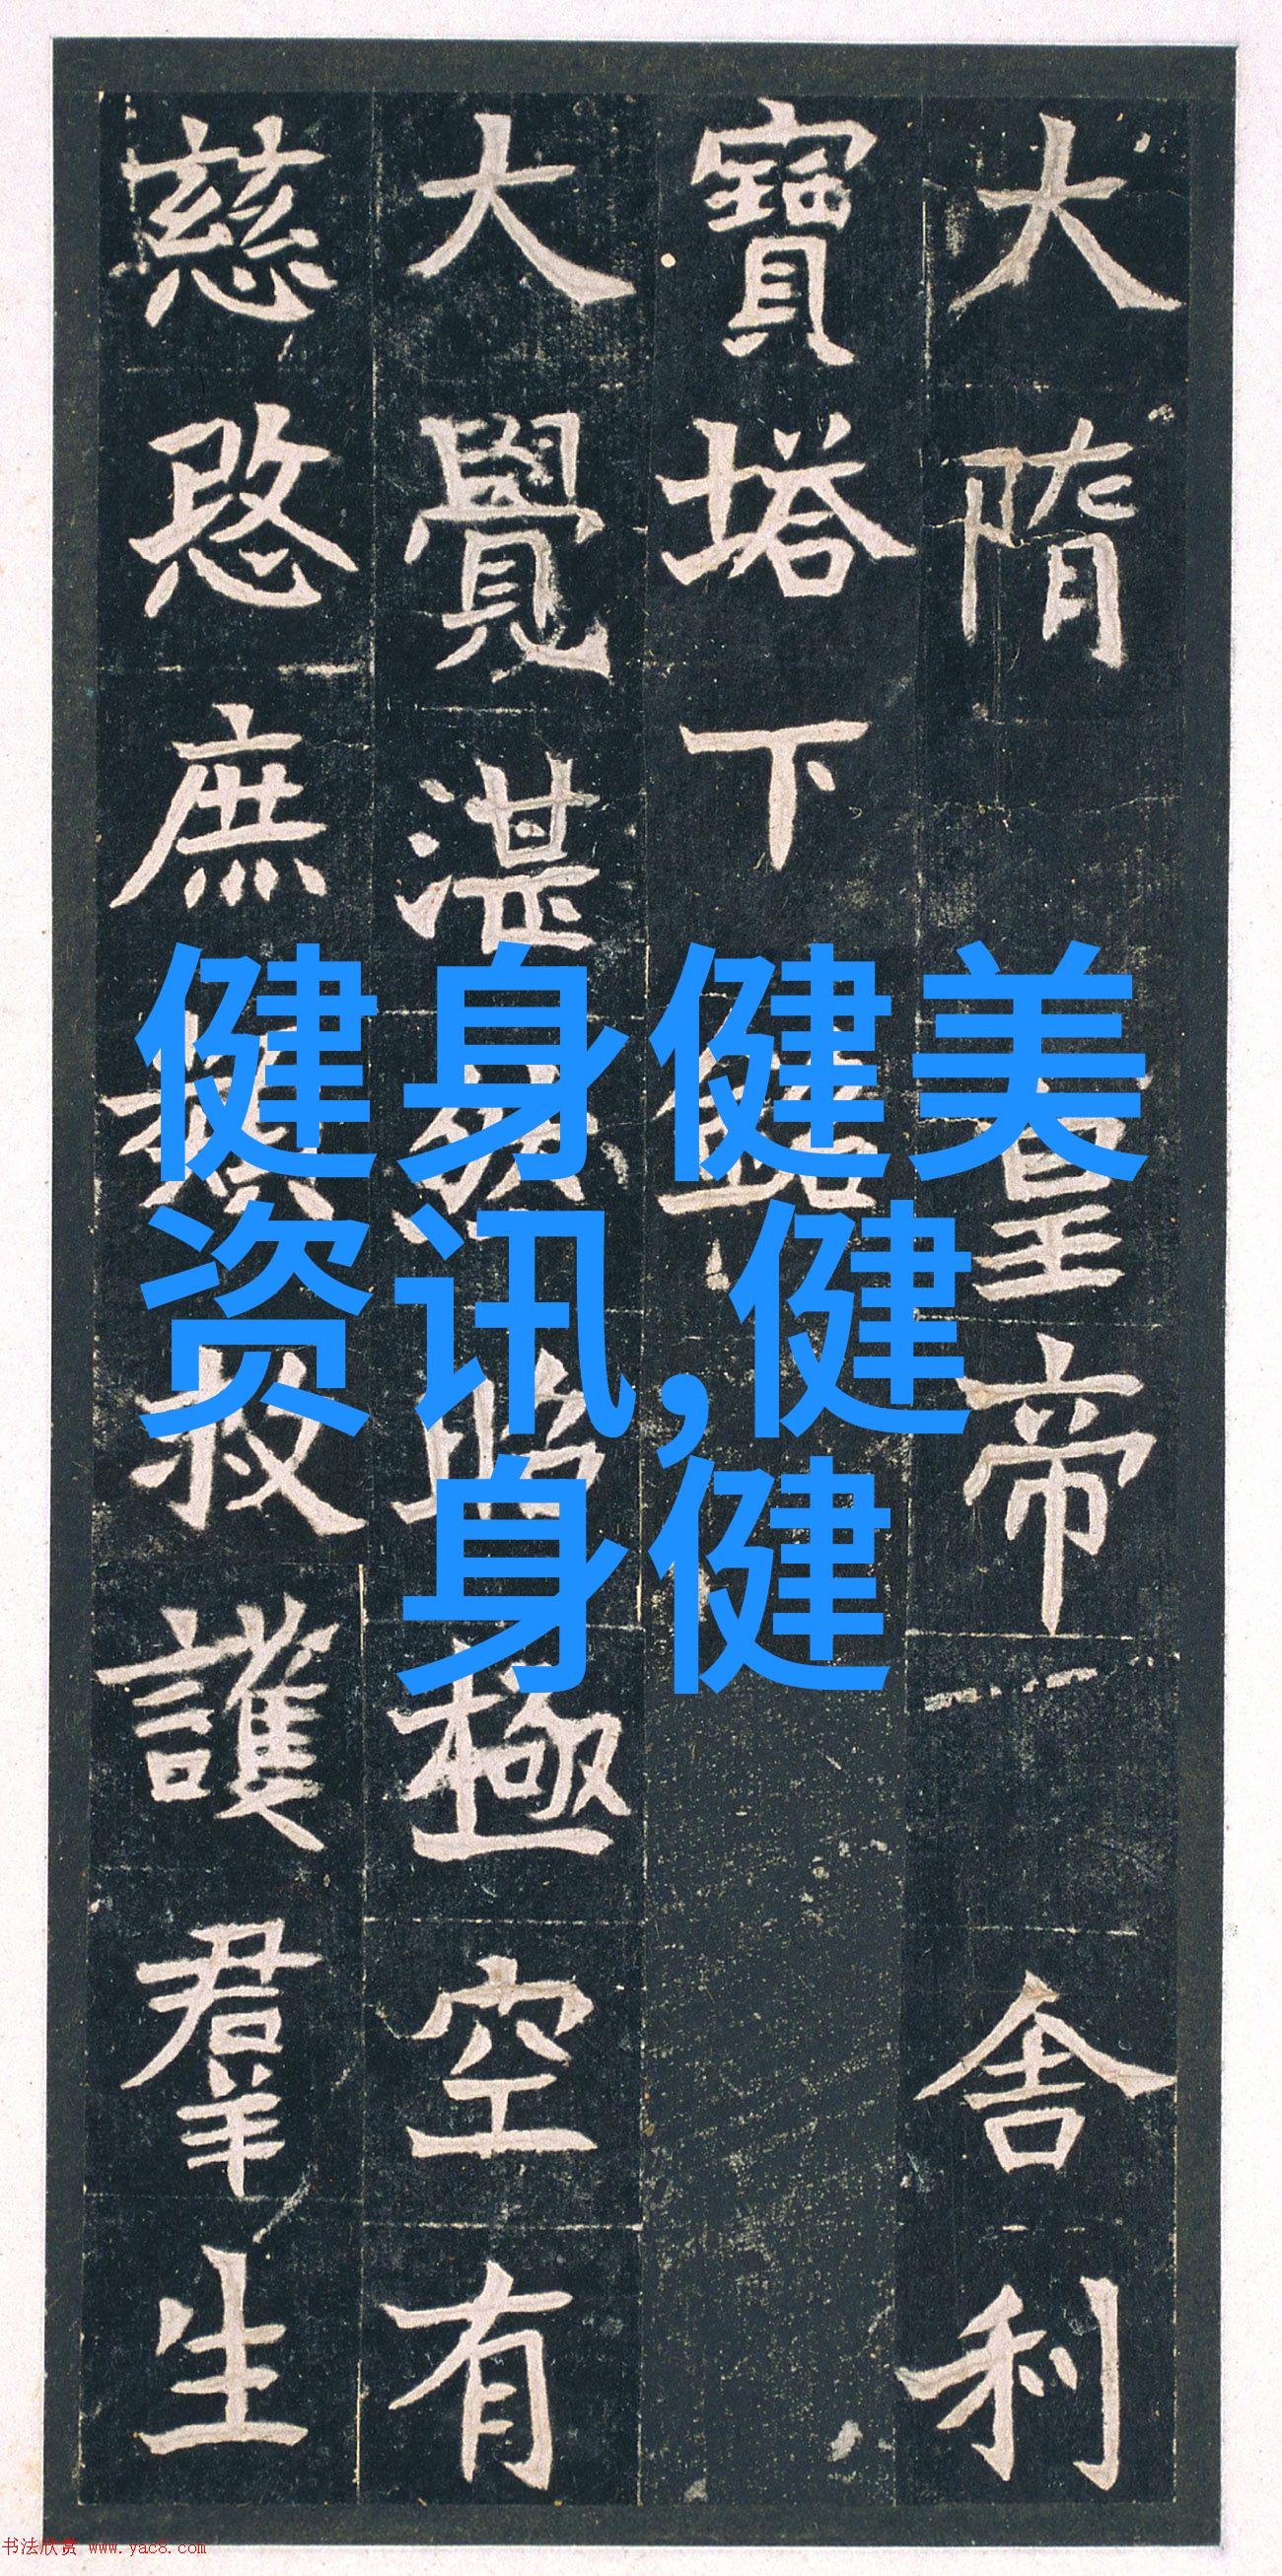 大隋皇帝舍利
寶塔下銘
大覺湛然昭極空有
慈愍庶類救護羣生
健身健美
资讯,健
身健
书法欣赏 www.yac8.com